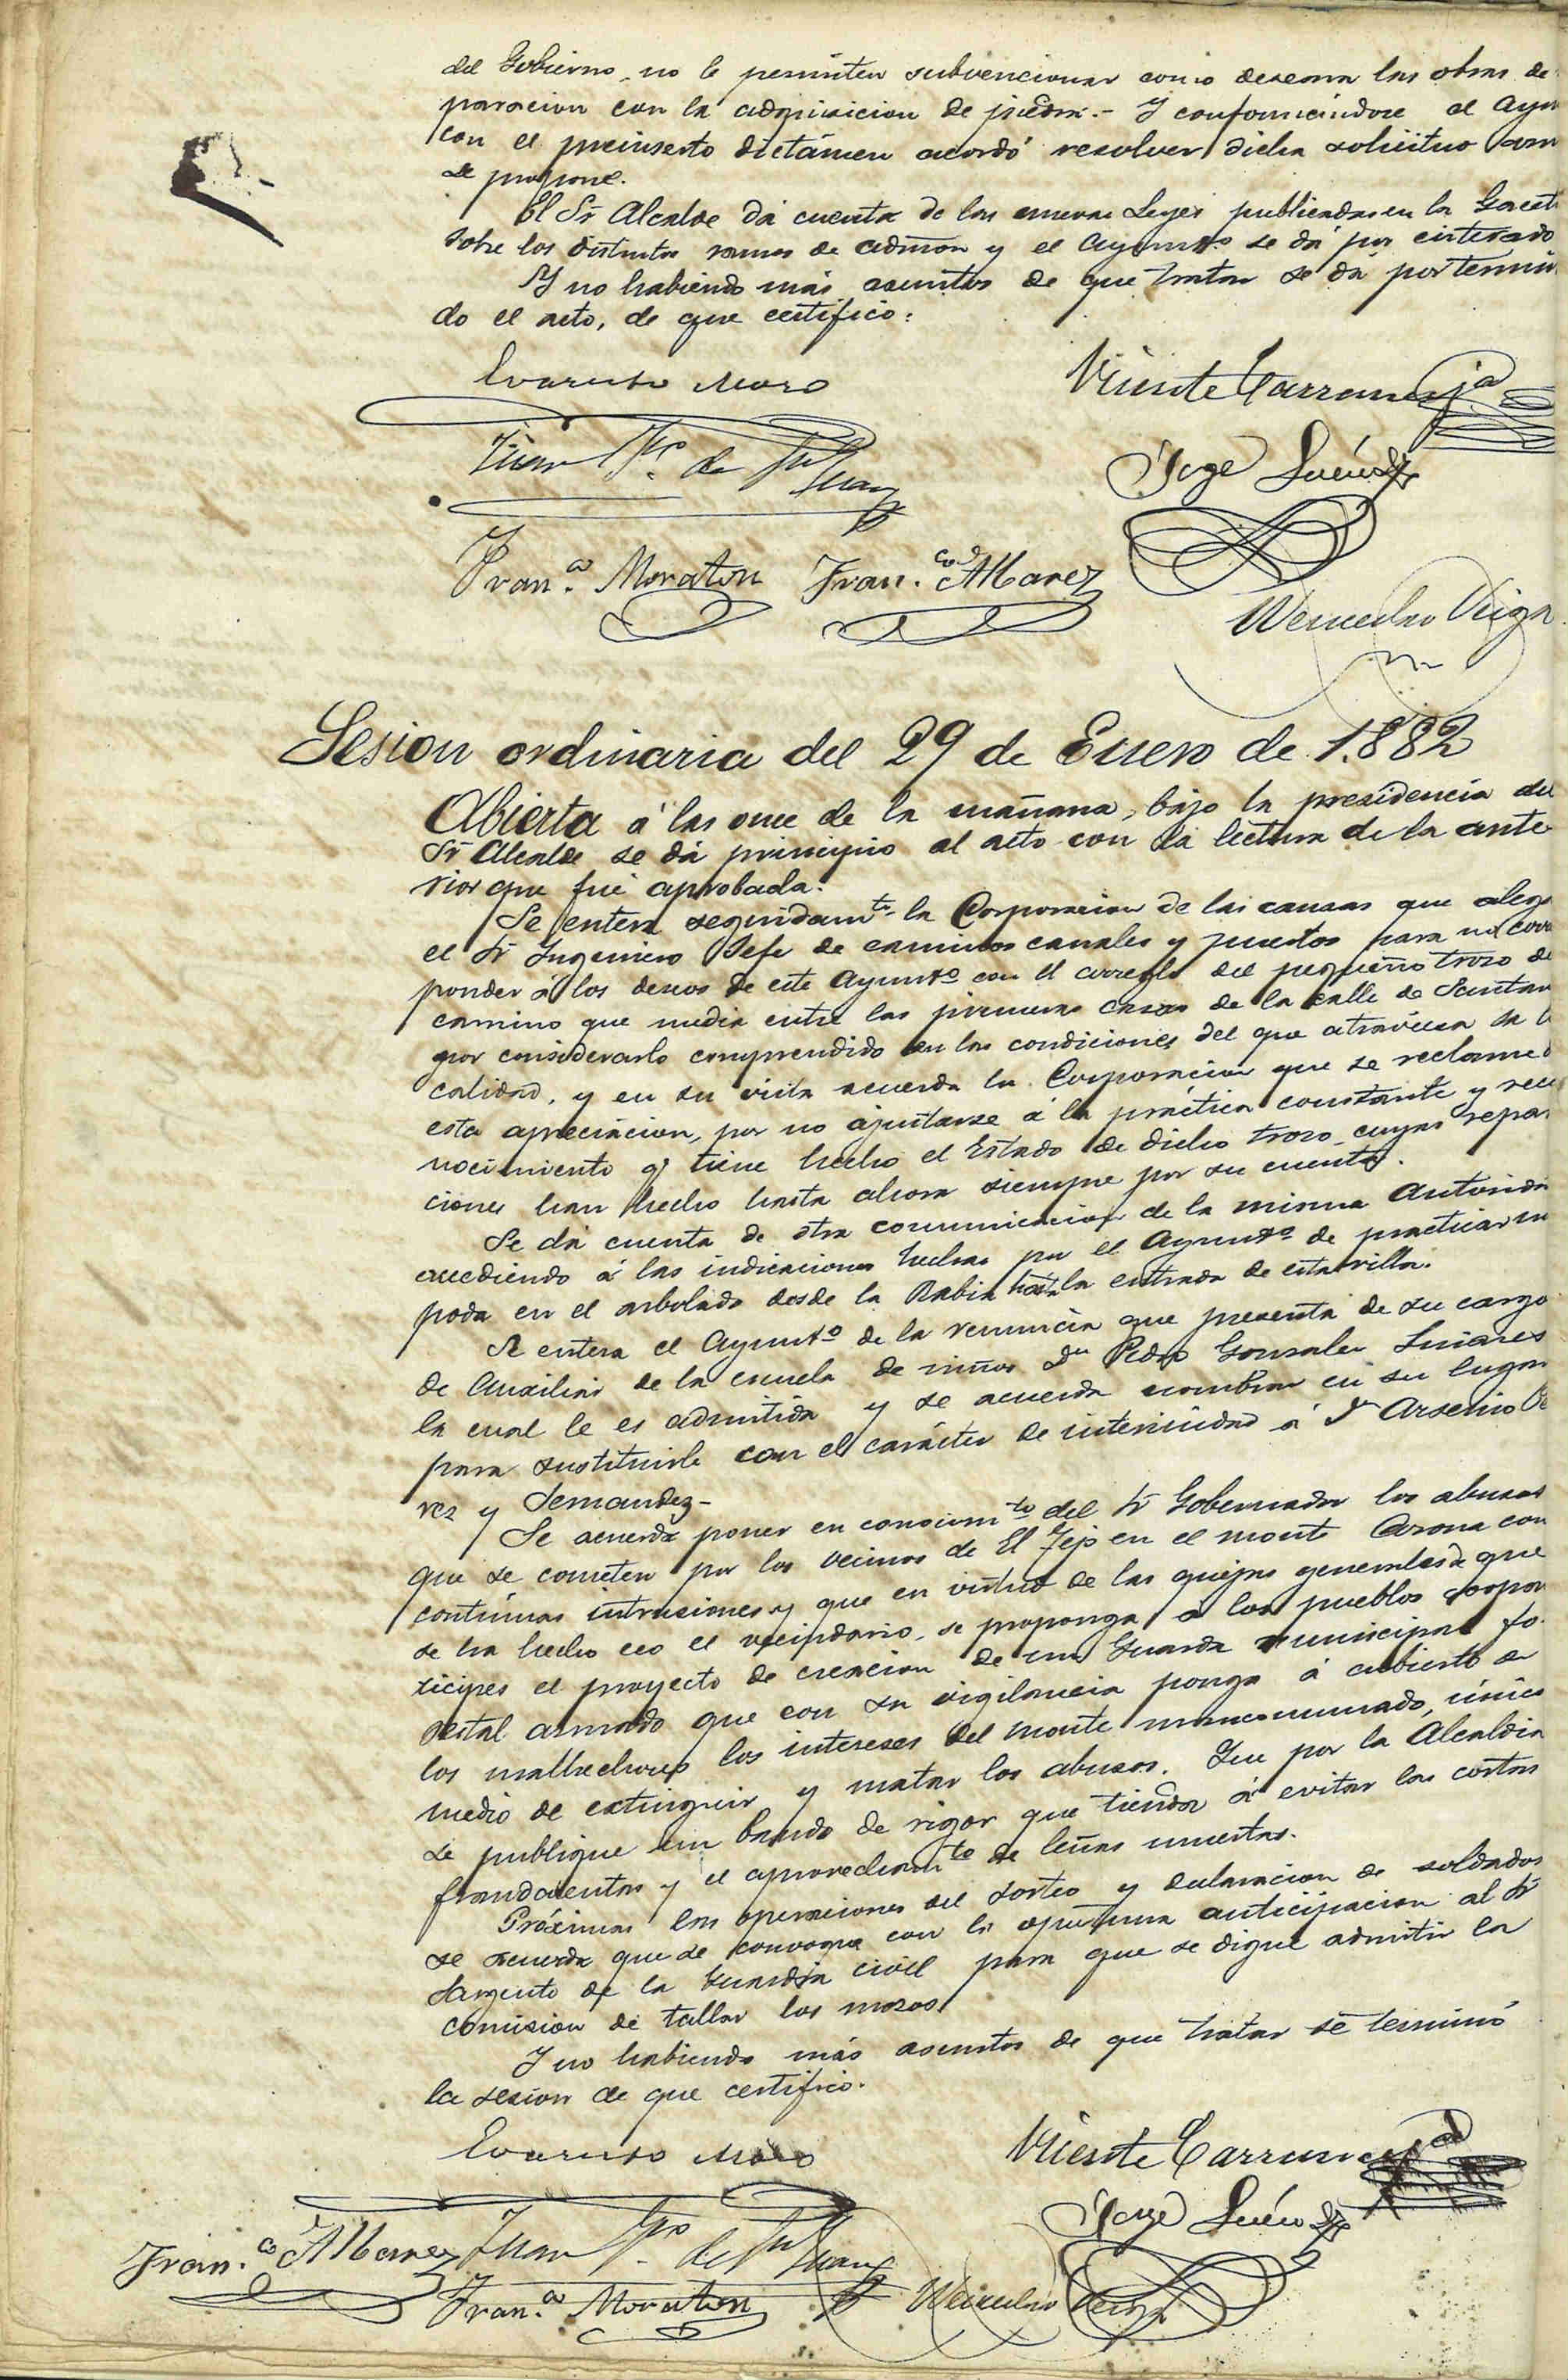 del Gobierno, no le permiten subvencionar como deseara las obras de
paracion con la adquisicion de piedra.- Y conformándose el Ayun
con el preinserto dictámen acordó resolver dicha solicitud com
se propone.
El Sr Alcalde dá cuenta de las nuevas Leyes publicadas en la Gacet
sobre los distintos ramos de admon y el Ayuntº se dá por enterado
Y no habiendo más asuntos de que tratar se dá por termin
do el acto, de que certifico:
Evaristo Moro
Vicente Carranceja
Juan Gº de
Jorge
Fran.co Moraton Fran.co Albarez
Wenceslao Veiga
Sesion ordinaria del 29 de Enero de 1.882
Abierta á las once de la mañana, bajo la presidencia del
Sr Alcalde se dá principio al acto con la lectura de la ante
rior que fué aprobada.
Se entera seguidamte la Corporacion de las causas que alega
el Sr Ingeniero Jefe de caminos canales y puertos para no corres
ponder á los deseos de este Ayuntº con el arreglo del pequeño trozo de
camino que media entre las primeras casas de la calle de Santan
por considerarlo comprendido en las condiciones del que atraviesa la lo
calidad, y en su vista acuerda la Corporacion que se reclame d
esta apreciacion, por no ajustarse á la práctica constante y reco
nocimiento q' tiene hecho el Estado de dicho trozo cuyas repara
ciones han hecho hasta ahora siempre por su cuenta.
Se dá cuenta de otra comunicacion de la misma Autorida
accediendo á las indicaciones hechas por el Ayuntº de practicar un
poda en el arbolado desde la Rabia hasta la entrada de esta villa.
Se entera el Ayuntº de la renuncia que presenta de su cargo
de Auxiliar de la escuela de niños Dn Pedro Gonzalez Linares
la cual le es admitida y se acuerda nombrar en su lugar
para sustituirle con el carácter de interinidad á Dn Arsenio
rez y Fernandez-
Se acuerda poner en conocimto del Sr Gobernador los abusos
que se cometen por los vecinos de El Tejo en el monte Corona con
contínuas intrusiones y que en virtud de las quejas generales de que
se ha hecho eco el vecindario, se proponga á los pueblos copar
ticipes el proyecto de creacion de un Guarda municipal fo
restal armado que con su vigilancia ponga á cubierto de
los malhechores los intereses del monte mancomunado, único
medio de extinguir y matar los abusos. Que por la Alcaldia
se publique un bando de rigor que tienda á evitar las cortas
fraudulentas y el aprovechamto de leñas muertas.
Próximas las operaciones del sorteo y declaracion de soldados
se acuerda que se convoque con la oportuna anticipacion al Sr
Sargento de la Guardia civil para que se digne admitir la
comision de tallar los mozos.
Y no habiendo más asuntos de que tratar se terminó
la sesion de que certifico.
Evaristo Moro
Vicente Carranceja
Jorge
Fran.co Albarez Juan Gº de
Fran.co Moraton
Wenceslao Veiga